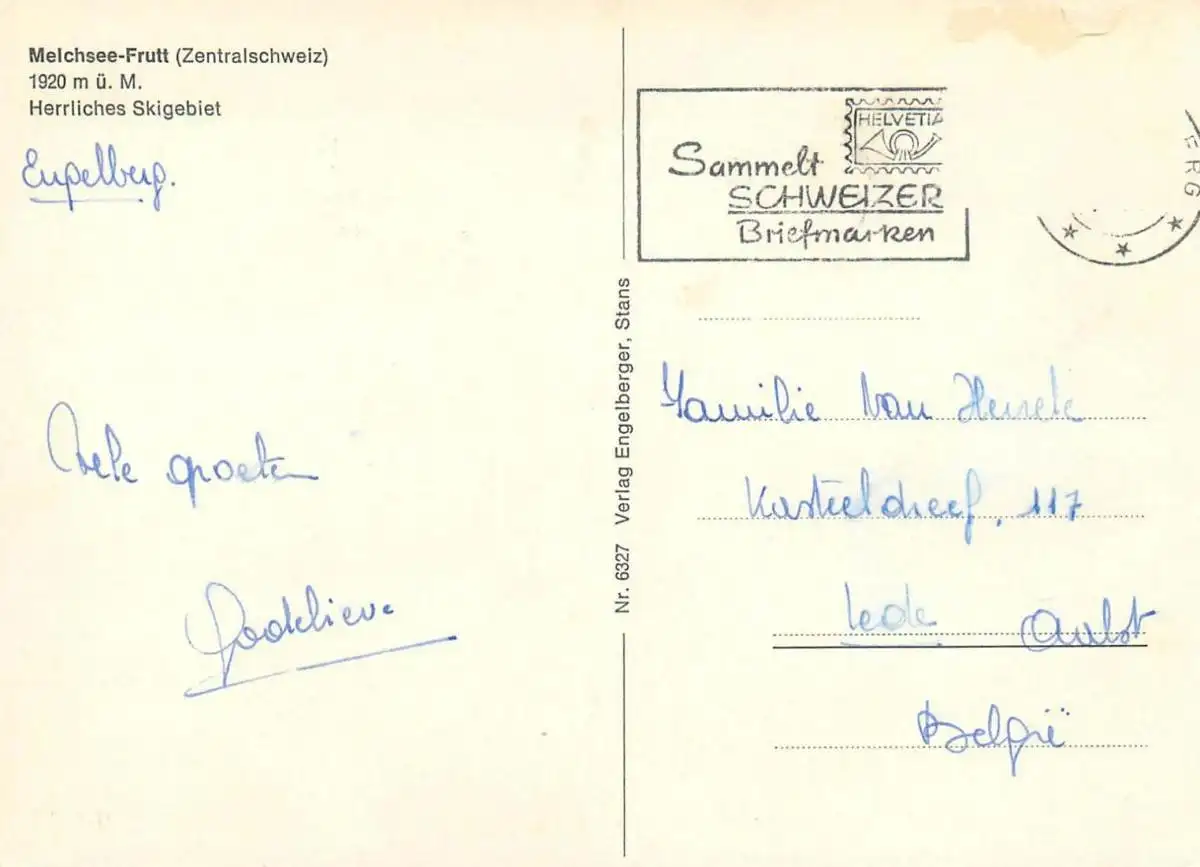 Melchsee-Frutt (Zentralschweiz)
1920 m ü. M.
Herrliches Skigebiet
Engelberg.
Vele groeten
Godelieve
Nr. 6327 Verlag Engelberger, Stans
HELVETIA
Sammelt
SCHWEIZER
Briefmarken
ERG
Familie Van
Kasteeldreef, 117
Lede Aalst
België